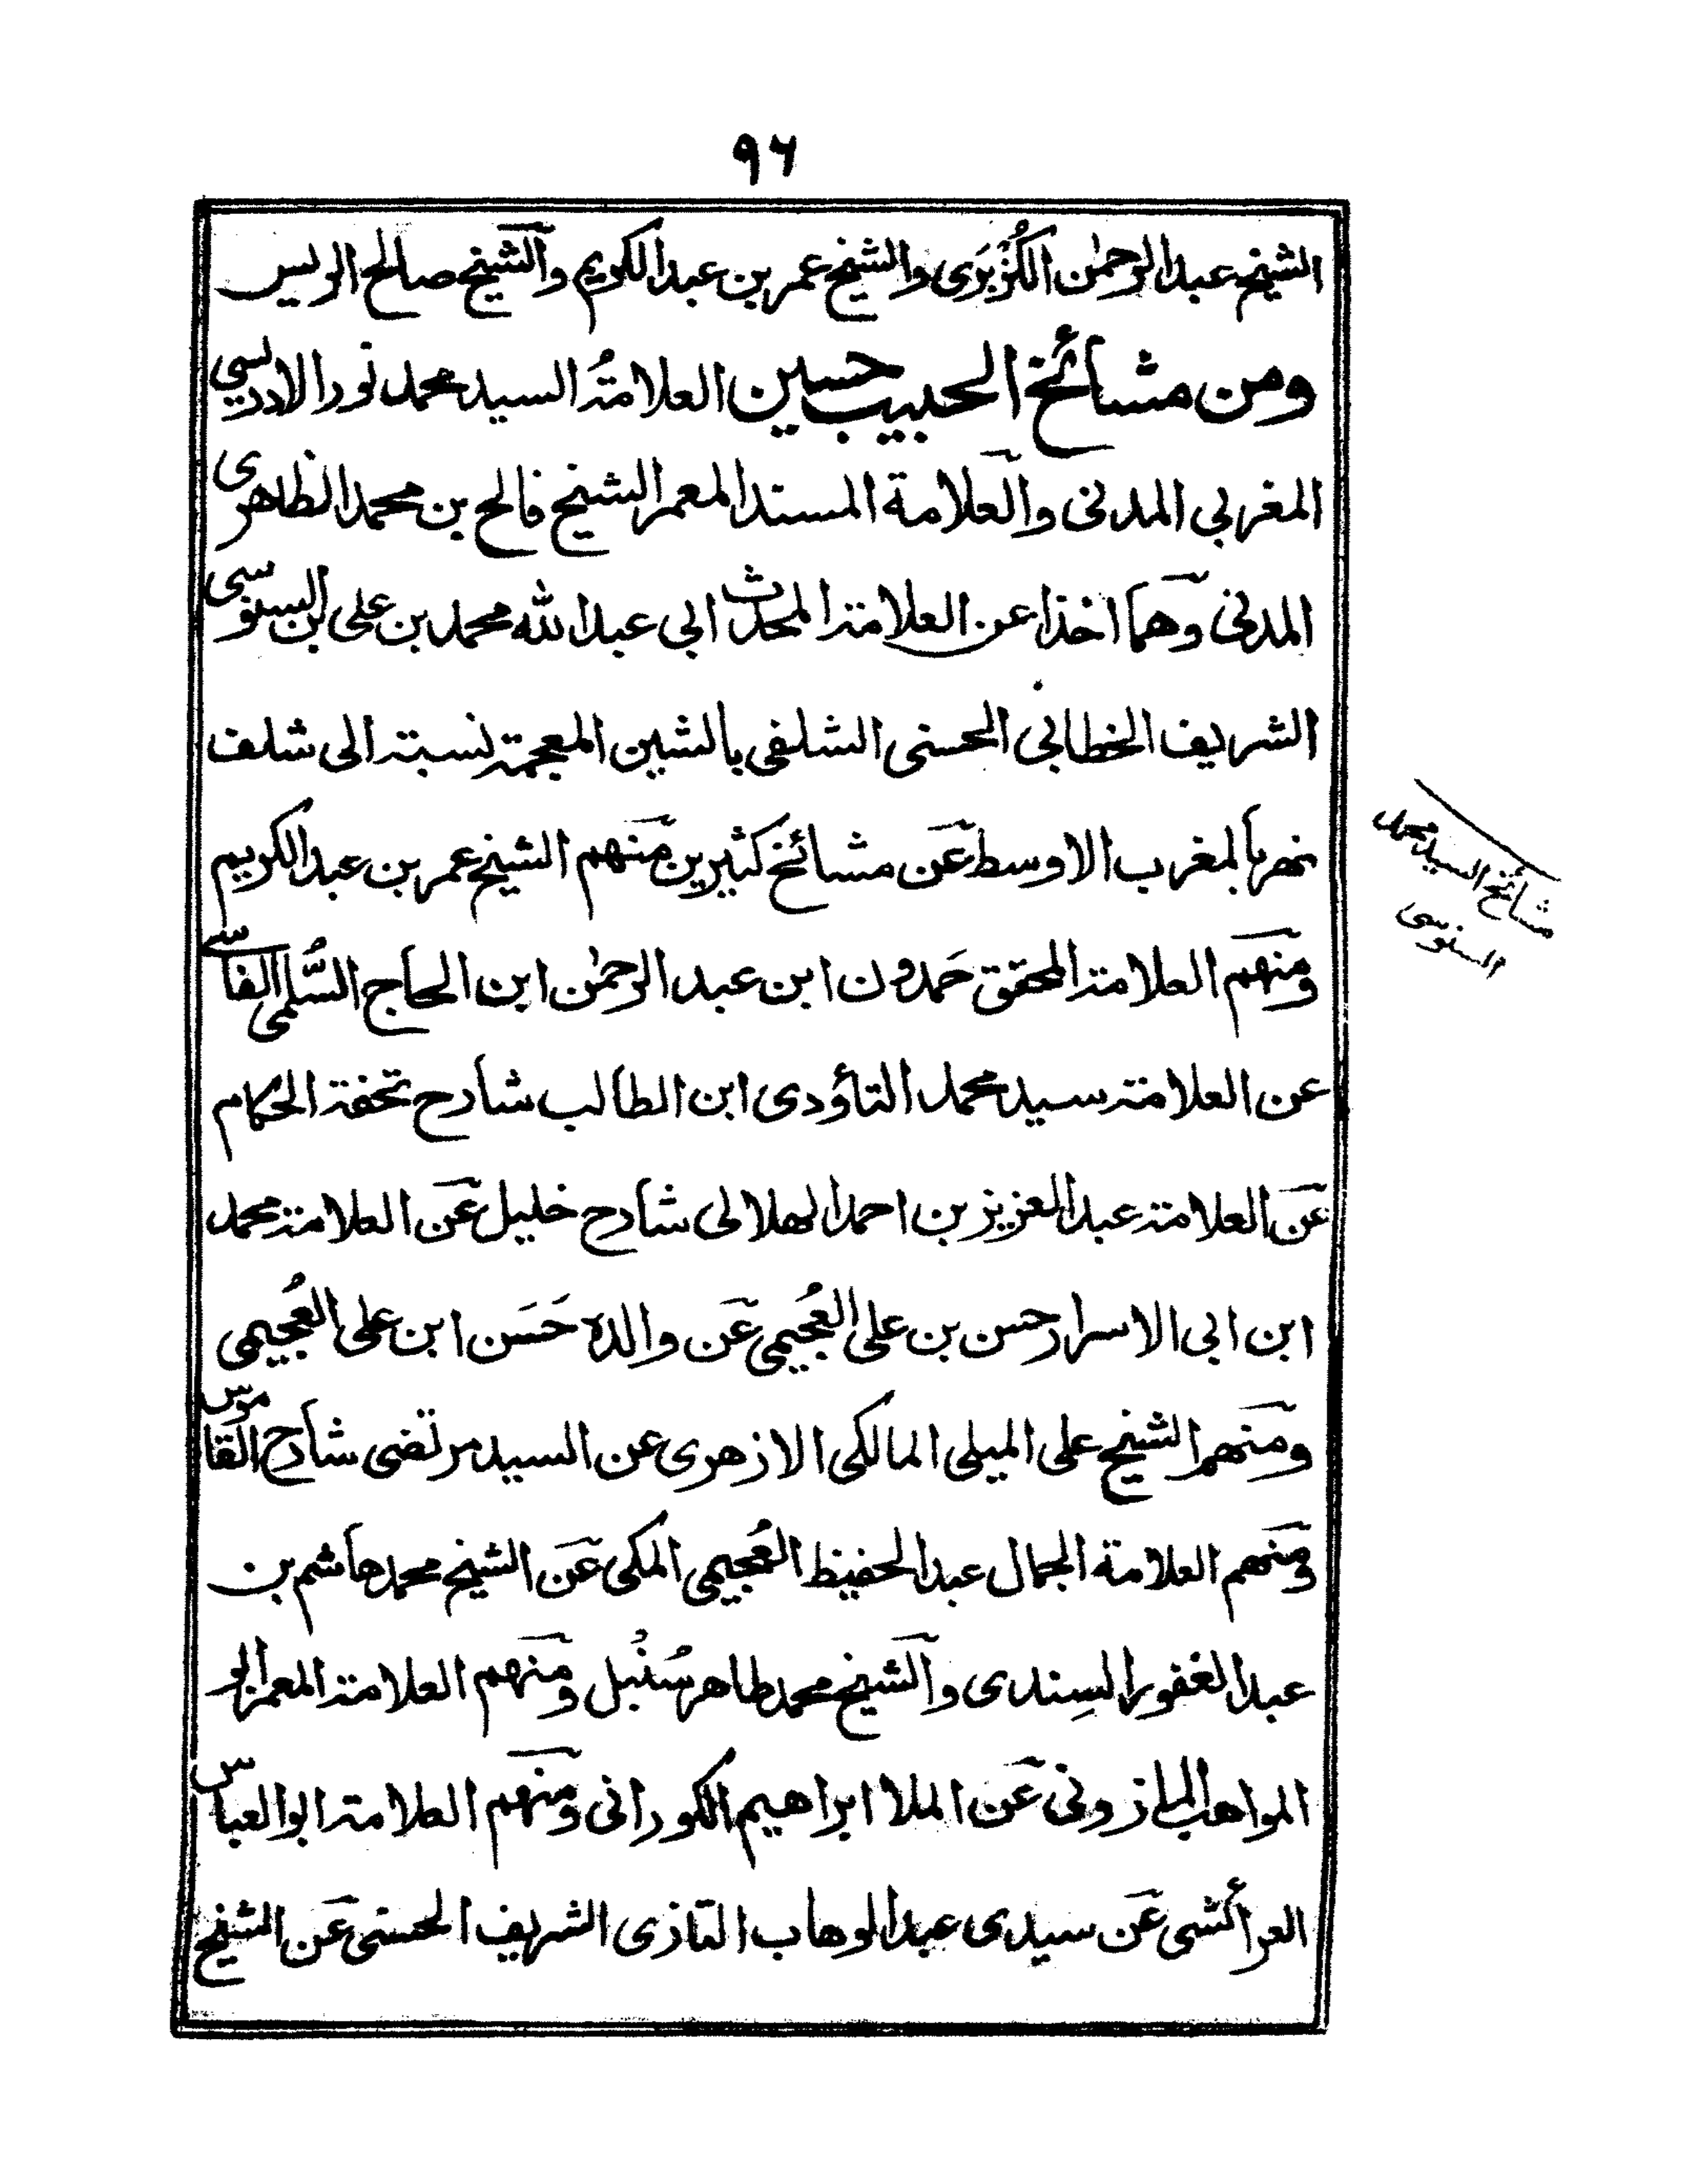 ٩٦
الشيخ عبد الرحمٰن الكُزْبَرَى والشيخ عمر بن عبد الكريم والشيخ صالح الريس
ومن مشائخ الحبيب حسين العلامةُ السيد محمد نور الادريسي
المغربي المدنى والعلامة المسند المعمر الشيخ فالح بن محمد الظاهرى
المدنى وهما اخذا عن العلامة المحدث ابي عبد الله محمد بن على بن السنوسى
الشريف الخطابى الحسنى الشلفى بالشين المعجمة نسبة الى شلف
نهر بالمغرب الاوسط عن مشائخ كثيرين منهم الشيخ عمر بن عبد الكريم
ومنهم العلامة المحقق حَمدون ابن عبد الرحمٰن ابن الحاج السُّلمى الفاسى
عن العلامة سيد محمد التاؤدى ابن الطالب شارح تحفة الحكام
عن العلامة عبد العزيز بن احمد الهلالى شارح خليل عن العلامة محمد
ابن ابى الاسرار حسن بن على العُجيمى عن والده حَسَن ابن على العُجيمى
ومنهم الشيخ على الميلى المالكى الازهرى عن السيد مرتضى شارح القاموس
ومنهم العلامة الجمال عبد الحفيظ العُجيمى المكى عن الشيخ محمد هاشم بن
عبد الغفور السِندى والشيخ محمد طاهر سُنْبل ومنهم العلامة المعمر ابو
المواهب المازرونى عن الملا ابراهيم الكورانى ومنهم العلامة ابو العباس
العرائشى عن سيدى عبد الوهاب التازى الشريف الحسنى عن الشيخ
مشائخ السيد محمد
السنوسى